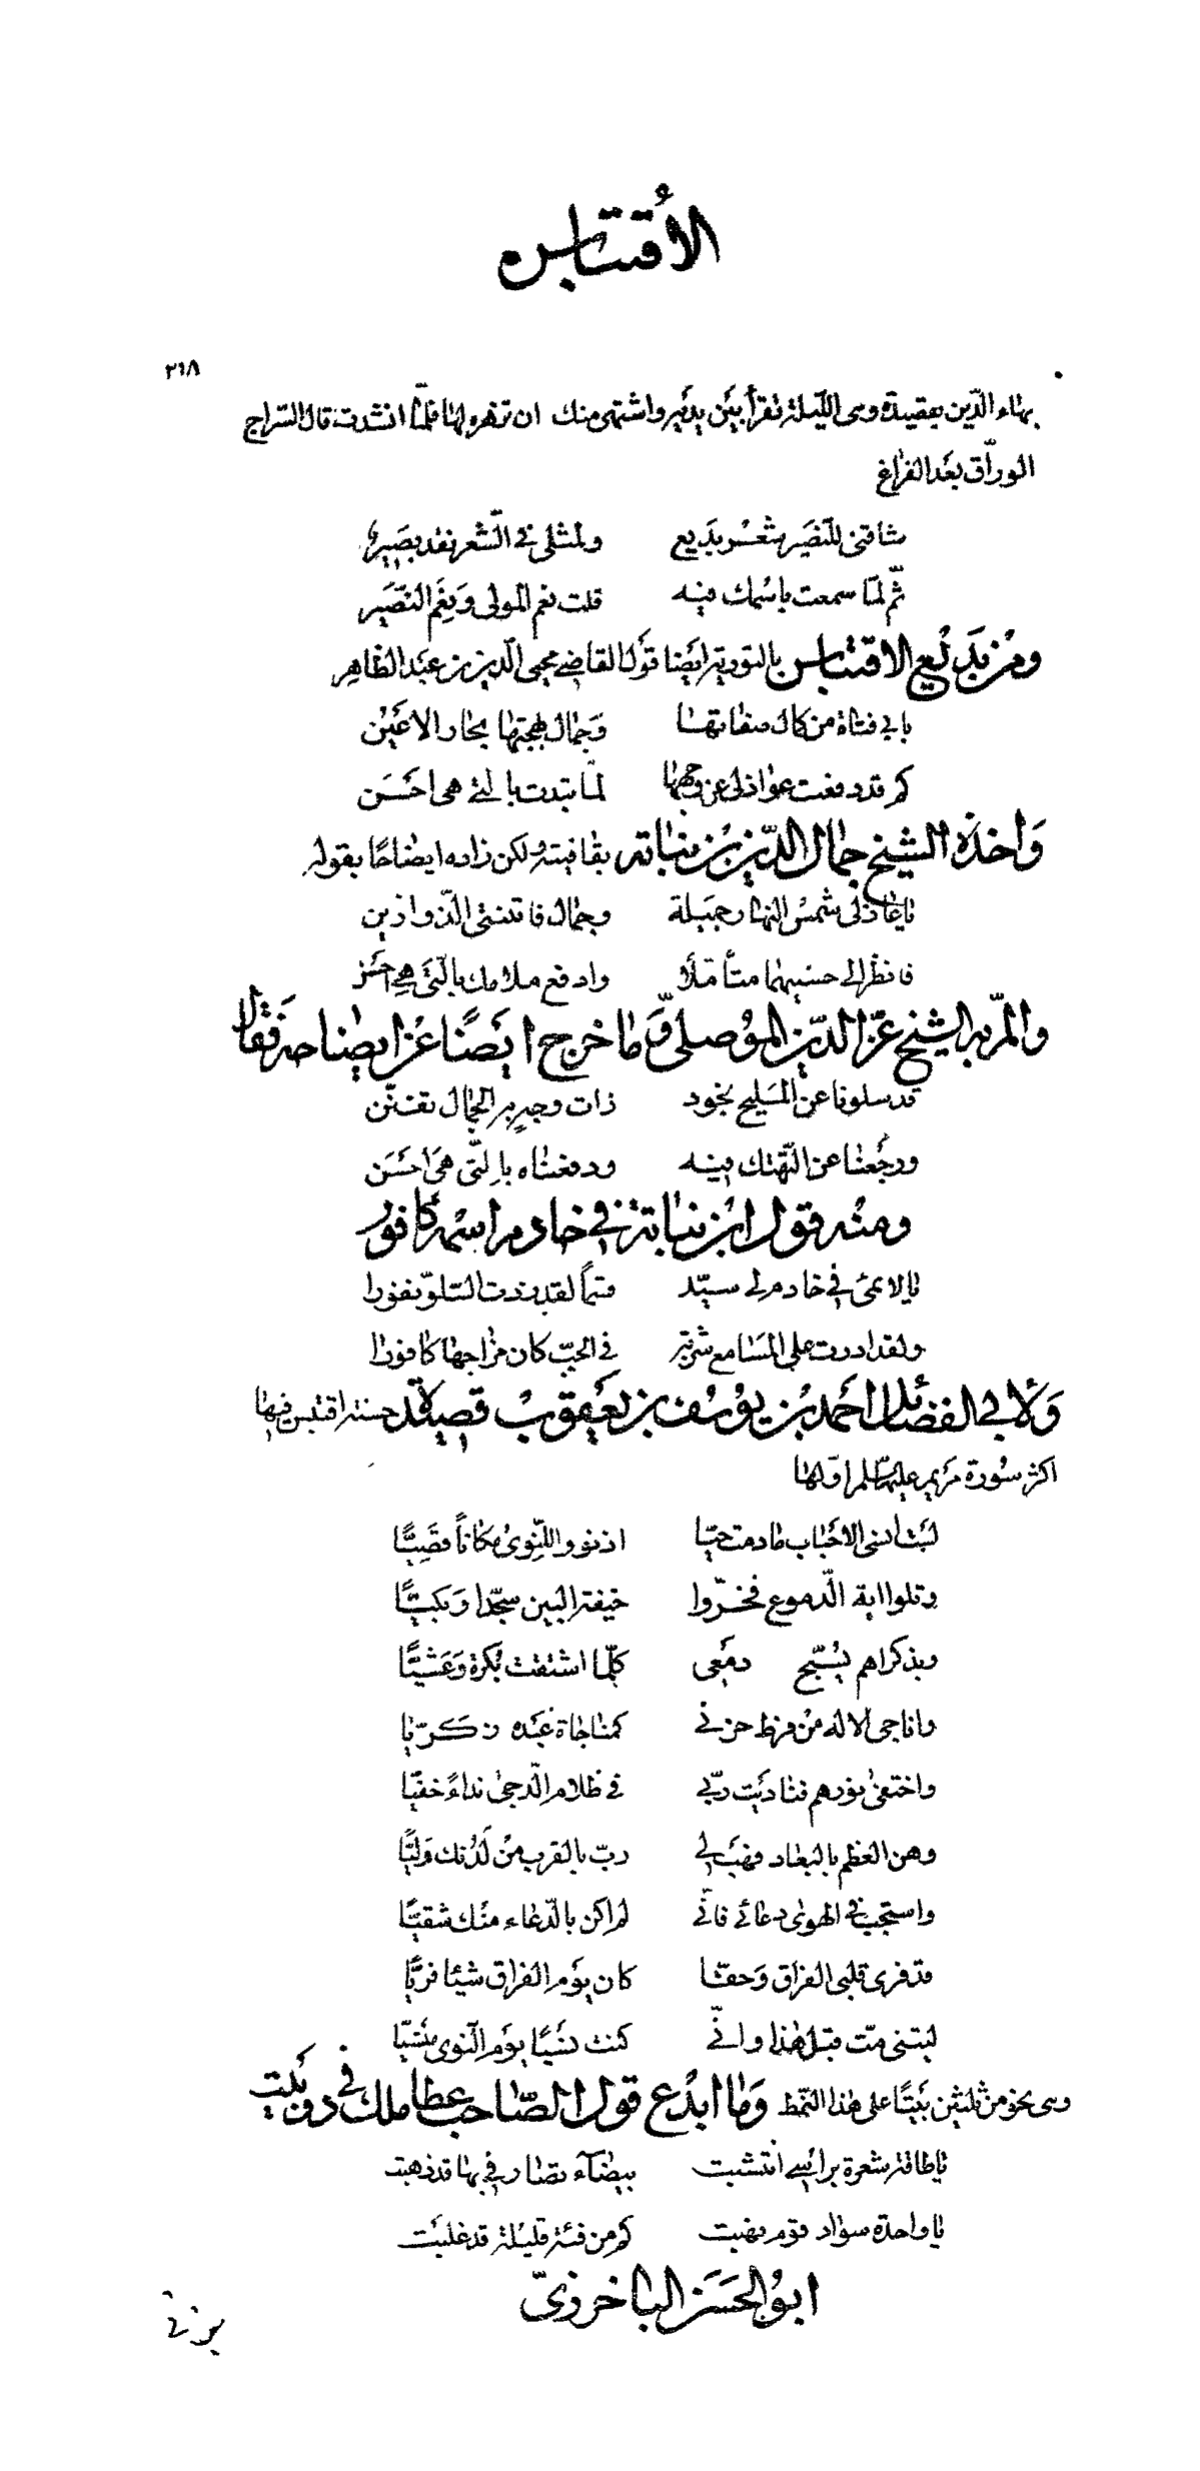 الاقتباس
٢١٨
بهاء الدّين بعقيدة وهى اللّيلة تقرأ بين يديه واشتهى منك ان تزهره لها فلمّا انشدت قال السّراج
الورّاق بعد الفراغ
شاقنى للنّصير شعر بديع ولمثلى فى الشّعر نقد بصير
ثمّ لمّا سمعت باسمك فيه قلت نعم المولى ونعم النّصير
ومن بديع الاقتباس بالتورية ايضا قول القاضى محيى الدّين بن عبد الظاهر
بابى فتاة من كمال صفاتها وجمال بهجتها تحار الاعين
كم قد دفعت عواذلى عن وجهها لمّا تبدت بالتى هى احسن
واخذه الشيخ جمال الدّين بن نباته بقافيته ولكن زاده ايضاحا بقوله
يا عاذلى شمس النهار جميلة وجمال فاتنتى الذّ وازين
فانظر الى حسنيهما متأمّلا وادفع ملامك بالّتى هى احسن
والمّ به الشيخ عزّ الدّين الموصلى وما خرج ايضًا عن ايضاحه فقال
قد سلونا عن المليح بخود ذات وجهٍ به الجمال تفنّن
ورجعنا عن التّهتك فيه ودفعناه بالّتى هى احسن
ومنه قول ابن نباتة فى خادم اسمه كافور
يا لائمى فى خادم لى سيّد قسمًا لقد زدت السّلوّ نفورا
ولقد ادرت على المسامع شربة فى الحبّ كان مزاجها كافورا
ولابى الفضائل احمد بن يوسف بن يعقوب قصيدة حسنة اقتبس فيها
اكثر سورة مريم عليها السلم اوّلها
لست انسى الاحباب ما دمت حيّا اذ نووا للنّوى مكاناً قصيّا
وتلوا اية الدّموع فخرّوا خيفة البين سجّدا وبكيّا
وبذكراهم يسبّح دمعى كلّما اشتقت بكرة وعشيّا
واناجى الاله من فرط حزنى كمناجاة عبده زكريّا
واختفى نورهم فناديت ربّى فى ظلام الدّجى نداءً خفيّا
وهن العظم بالبعاد فهب لى ربّ بالقرب من لدنك وليّا
واستجب فى الهوى دعائى فانّى لم اكن بالدّعاء منك شقيّا
قد فرى قلبى الفراق وحقّا كان يوم الفراق شيئا فريّا
ليتنى متّ قبل هذا وانّى كنت نسيًا يوم النّوى منسيّا
وهى نحو من ثلثين بيتًا على هذا النّمط وما ابدع قول الصّاحب عطا ملك فى دوبيت
يا طاقة شعرة براسى انتشبت بيضآء تضارفى بها قد ذهبت
يا واحدة سواد قوم نهبت كم من فئة قليلة قد غلبت
ابو الحسن الباخرزىّ